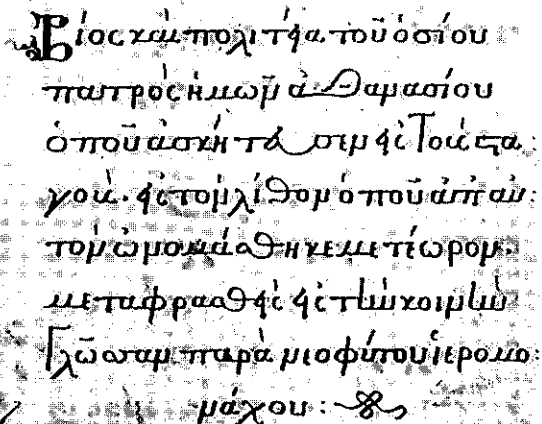 Βίος καὶ πολιτεία τοῦ ὁσίου
πατρὸς ἡμῶν ἀθανασίου
ὁποῦ ἀσκήτευσιν εἰς τοὺς στα:
γούς. εἰς τὸν λίθον ὁποῦ ἀπ' αὐ:
τὸν ὠνομάσθηκε μετέωρον.
μεταφρασθεὶς εἰς τὴν κοινὴν
γλῶσσαν παρὰ νεοφύτου ἱερομο:
νάχου :